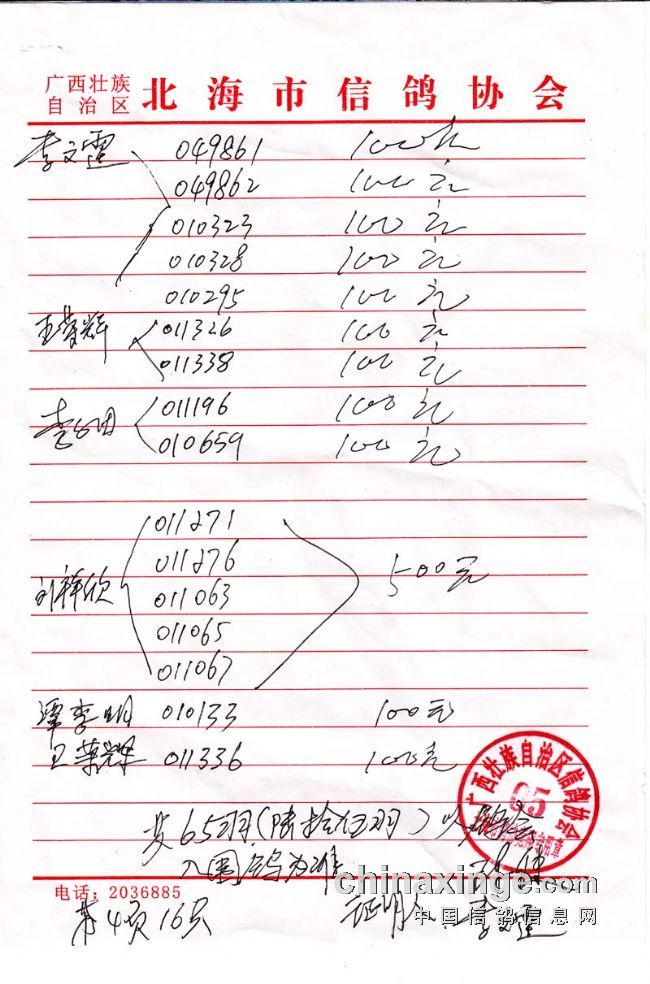 广西壮族
自治区 北海市信鸽协会
李文 049861 100元
049862 100元
010323 100元
010328 100元
010295 100元
王荣辉 011326 100元
011338 100元
011196 100元
010659 100元
011271
011276
刘祥欣 011063 500元
011065
011067
谭李明 010133 100元
王荣辉 011336 100元
广西壮族自治区信鸽协会
05
共65羽(陆拾伍羽)以
入围鸽为准
chinaxinge.com
电话:2036885
第4页16只 证明人 李文
中国信鸽信息网